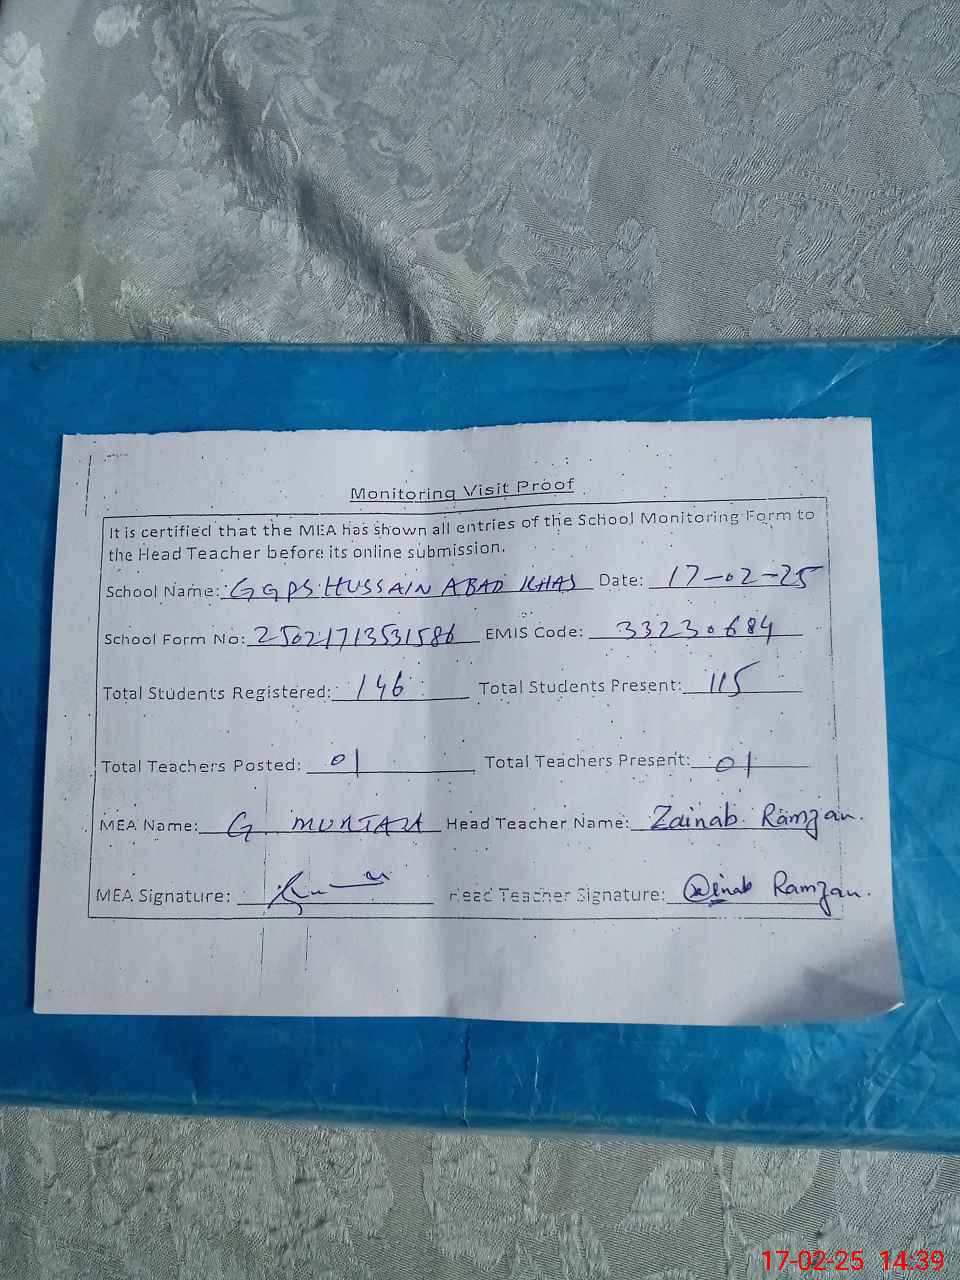 Monitoring Visit Proof
It is certified that the MEA has shown all entries of the School Monitoring Form to
the Head Teacher before its online submission.
School Name: GGPS HUSSAIN ABAD KHAS Date: 17-02-25
School Form No: 25021713531586 EMIS Code: 33230684
Total Students Registered: 146 Total Students Present: 115
Total Teachers Posted: 01 Total Teachers Present: 01
MEA Name: G MURTAZA Head Teacher Name: Zainab Ramzan.
MEA Signature: Head Teacher Signature: Ramzan.
17-02-25 14:39